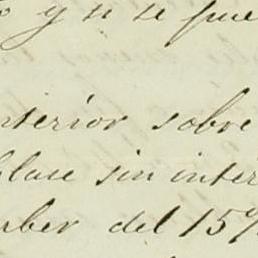 y si se pue
nterior sobre
blase sin inter
rber del 15%